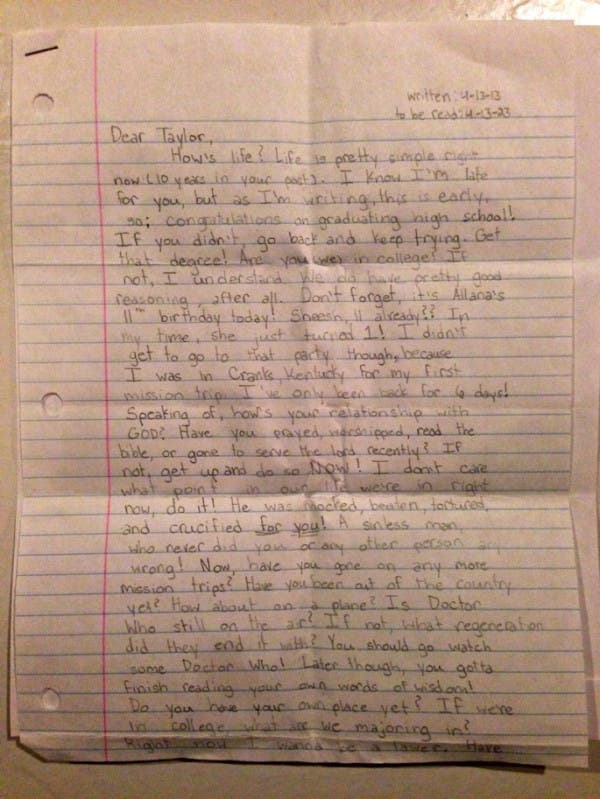 written: 4-13-13
to be read: 4-13-23
Dear Taylor,
How's life? Life is pretty simple right
now (10 years in your past). I know I'm late
for you, but as I'm writing, this is early,
so; congratulations on graduating high school!
If you didn't, go back and keep trying. Get
that degree! Are you (we) in college? If
not, I understand. We do have pretty good
reasoning, after all. Don't forget, it's Allana's
11th birthday today! Sheesh, 11 already?? In
my time, she just turned 1! I didn't
get to go to that party though, because
I was in Cranks, Kentucky for my first
mission trip. I've only been back for 6 days!
Speaking of, how's your relationship with
GOD? Have you prayed, worshipped, read the
bible, or gone to serve the lord recently? If
not, get up and do so NOW! I don't care
what point in our life we're in right
now, do it! He was mocked, beaten, tortured,
and crucified for you! A sinless man,
who never did you or any other person any
wrong! Now, have you gone on any more
mission trips? Have you been out of the country
yet? How about on a plane? Is Doctor
Who still on the air? If not, what regeneration
did they end it with? You should go watch
some Doctor Who! Later though, you gotta
finish reading your own words of wisdom!
Do you have your own place yet? If we're
in college what are we majoring in?
Right now I wanna be a lawer. Have